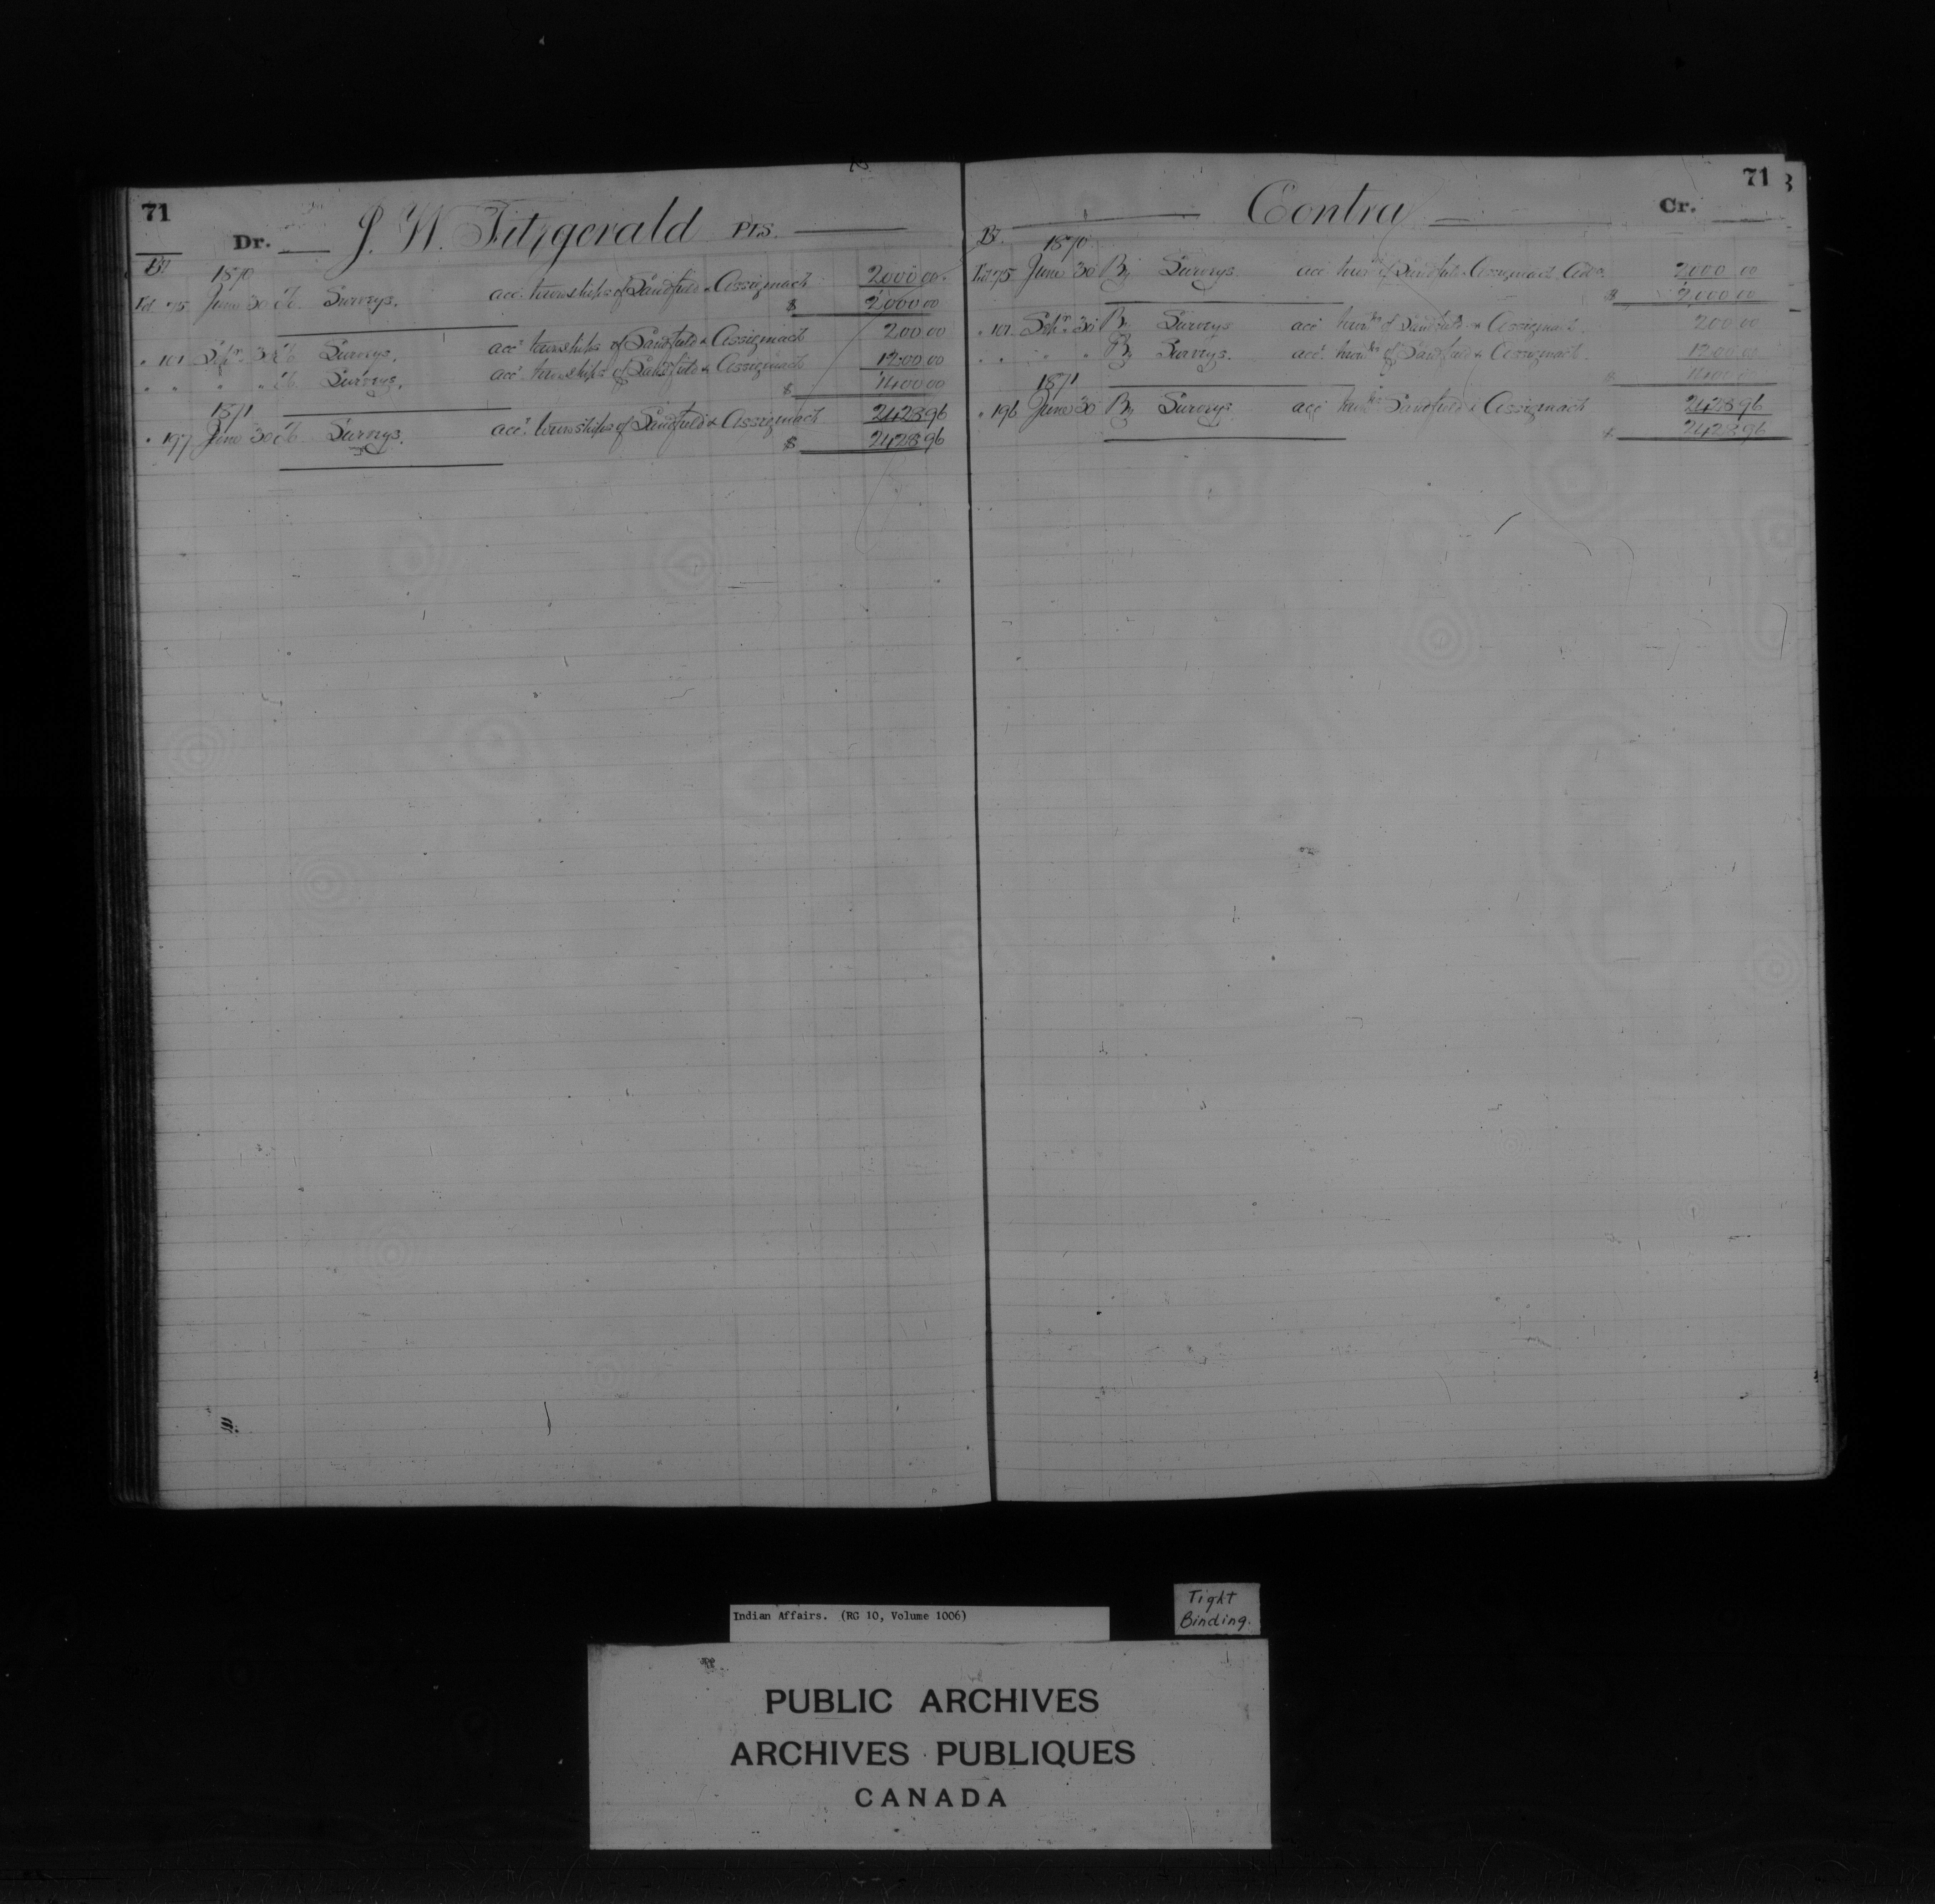 71
Dr. J. W. Fitzgerald PLS.
1870
Fol 75 June 30 To Surveys. acct. townships of Sandfield & Assiginack 2000 00
$ 2000 00
" 101 Sepr 30 To Surveys. acct. townships of Sandfield & Assiginack 200 00
" " " " To Surveys. acct. townships of Sandfield & Assiginack 1200 00
$ 1400 00
1871
" 197 June 30 To Surveys. acct. townships of Sandfield & Assiginack 2428 96
$ 2428 96
71
Contra Cr.
1870
Fol 75 June 30 By Surveys acct of Sandfield & Assiginack 2000 00
$ 2000 00
" 101 Sepr 30 By Surveys acct of Sandfield & Assiginack 200 00
" " " " By Surveys. acct. of Sandfield & Assiginack 1200 00
$ 1400 00
1871
" 196 June 30 By Surveys acct Sandfield & Assiginack 2428 96
$ 2428 96
Indian Affairs. (RG 10, Volume 1006)
Tight
Binding.
PUBLIC ARCHIVES
ARCHIVES PUBLIQUES
CANADA